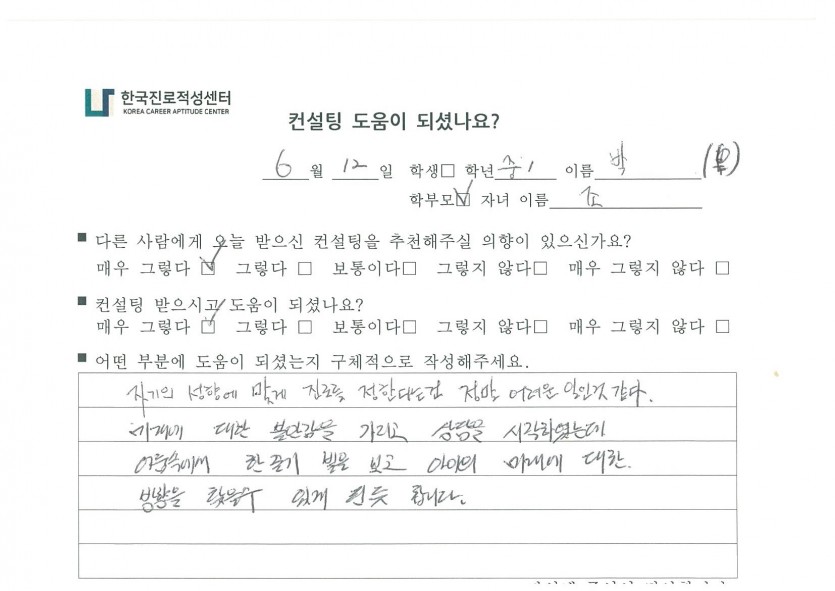 한국진로적성센터
KOREA CAREER APTITUDE CENTER
컨설팅 도움이 되셨나요?
6월 12일 학생□ 학년 중1 이름 박
학부모☑ 자녀 이름 조
■ 다른 사람에게 오늘 받으신 컨설팅을 추천해주실 의향이 있으신가요?
매우 그렇다 ☑ 그렇다 □ 보통이다□ 그렇지 않다□ 매우 그렇지 않다 □
■ 컨설팅 받으시고 도움이 되셨나요?
매우 그렇다 ☑ 그렇다 □ 보통이다□ 그렇지 않다□ 매우 그렇지 않다 □
■ 어떤 부분에 도움이 되셨는지 구체적으로 작성해주세요.
자기의 성향에 맞게 진로를 정한다는건 정말 어려운 일인것 같다.
대한 불안감을 가리고 상담을 시작하였는데
어둠속에서 한 줄기 빛을 보고 아이의 미래에 대한
방향을 찾을수 있게 된듯 합니다.